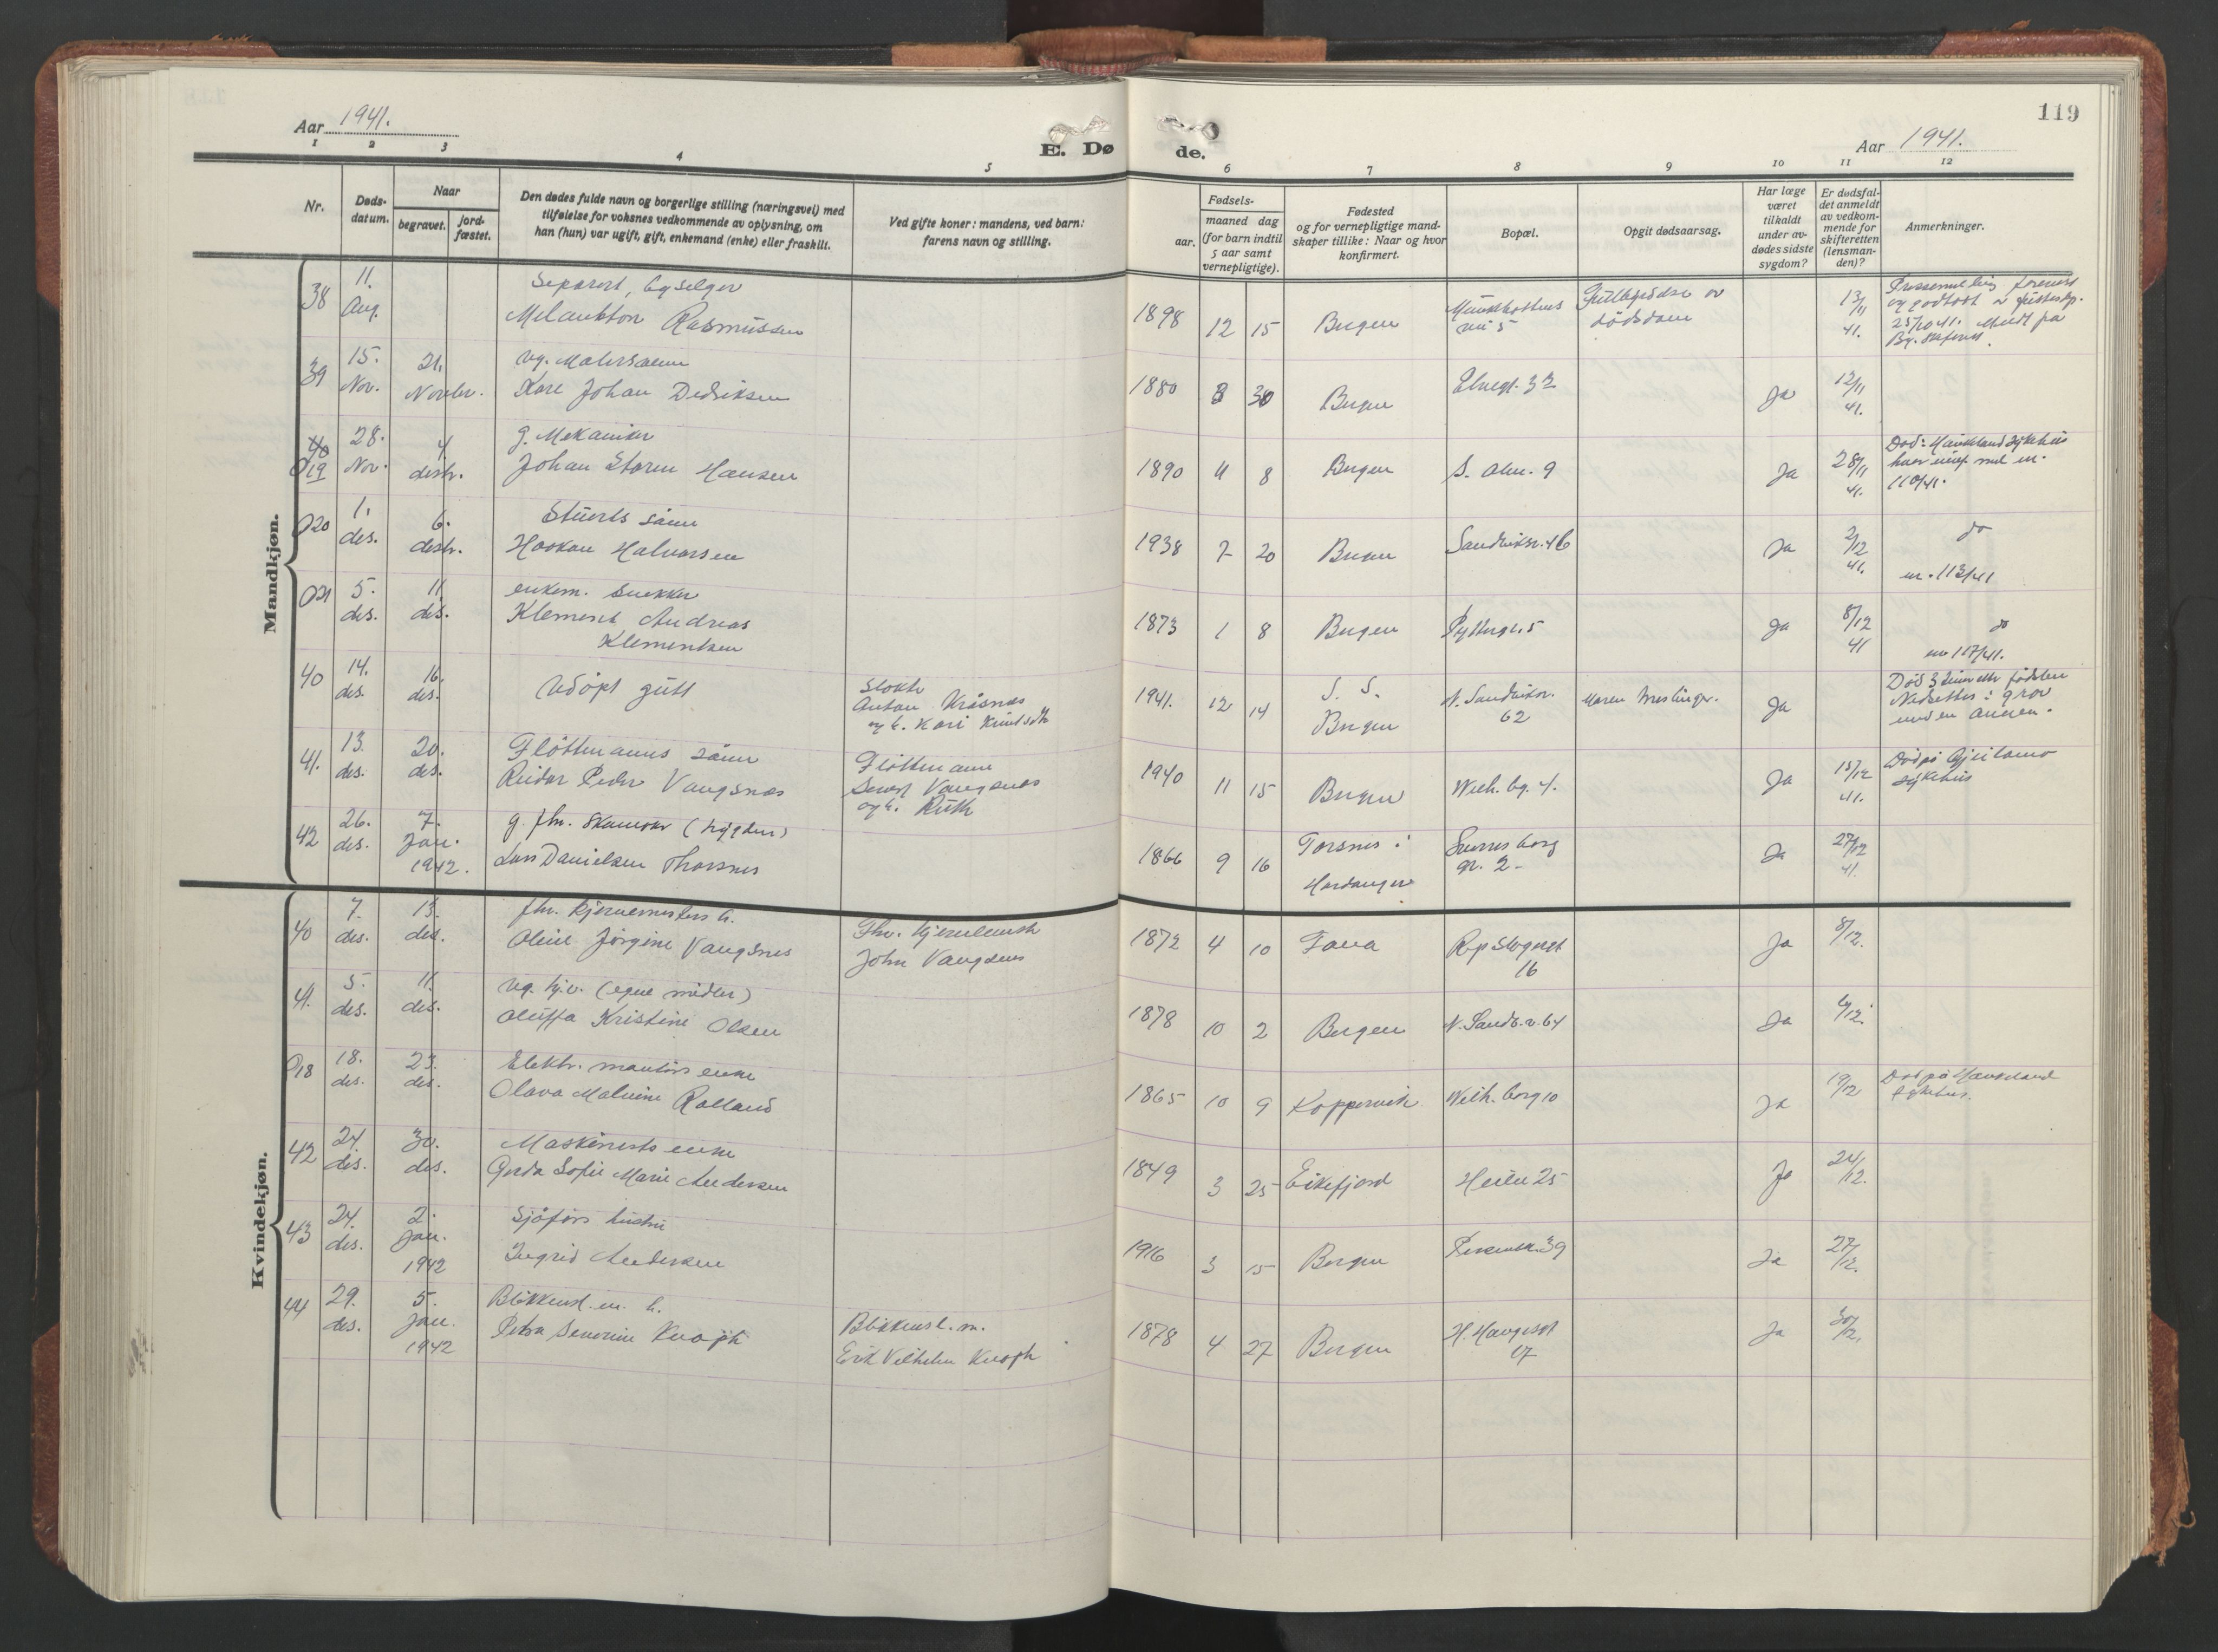 119
Aar 1941.
E. Dø
de.
Aar 1941.
1 2 3 4 5 6 7 8 9 10 11 12
Nr.
Døds-
datum.
Naar
begravet.
jord-
fæstet.
Den dødes fulde navn og borgerlige stilling (næringsvei) med
tilføielse for voksnes vedkommende av oplysning, om
han (hun) var ugift, gift, enkemand (enke) eller fraskilt.
Ved gifte koner: mandens, ved barn:
farens navn og stilling.
Fødsels-
aar.
maaned dag
(for barn indtil
5 aar samt
vernepligtige).
Fødested
og for vernepligtige mand-
skaper tillike: Naar og hvor
konfirmert.
Bopæl.
Opgit dødsaarsag.
Har læge
været
tilkaldt
under av-
dødes sidste
sygdom?
Er dødsfal-
det anmeldt
av vedkom-
mende for
skifteretten
(lensman-
den)?
Anmerkninger.
Mandkjøn.
38 11. Aug.
Separert, byselger
Melankton Rasmussen
1898 12 15 Bergen
vei 5
dødsdom
13/11 41.
39 15. Nov. 21. Novbr.
Karl Johan Dedriksen
1880 3 30 Bergen
Elvegt. 32
Ja 12/11 41.
40
O19 28. Nov. 4 desbr.
g. Mekaniker
Johan Storm Hansen
1890 11 8 Bergen S. alm. 9
Ja 28/11 41.
Død i Haukeland sykehus
110/41.
O20 1. des. 6. desbr.
Stuerts sønn
Haakon Halvorsen
1938 7 20 Bergen Sandviksv. 46
Ja 2/12 41. do
nr. 113/41
O21 5. des. 11 des.
enkem. snekker
Klement Andreas
Klementsen
1873 1 8 Bergen Pyttergr. 5
Ja 8/12 41 do
nr 117/41.
40 14. des. 16. des.
Udøpt gutt
Anton Kråsnes
1941. 12 14 S. S.
Bergen
N. Sandviksv.
62
Ja
Nedsettes i grav
41. 13. des. 20. des.
Fløttmanns sønn
Reidar Peder Vangsnes
Fløttmann
Senert Vangsnes
og h. Ruth
1940 11 15 Bergen Wilh. bg. 4.
Ja 15/12 41.
sykehus
42 26. des. 7. Jan. 1942.
Lars Danielsen Thorsnes
1866 9 16 Torsnes i
Hardanger
gr. 2
Ja 27/12 41.
Kvindekjøn.
40 7. des. 13. des.
Oline Jørgine Vangsnes
John Vangsnes
1872 4 10 Fana
16
Ja 8/12.
41. 5. des. 11. des.
ug. hj.v. (egne midler)
Oluffa Kristine Olsen
1878 10 2 Bergen N. Sandv. v. 64
Ja 6/12.
O18 18. des. 23. des.
Elektr. montørs enke
Olava Malvine Rolland
1865 10 9 Koppervik Wilh. borg 10
Ja 19/12
Død på Haukeland
sykehus.
42 24. des. 30. des.
Maskinists enke
Gerda Sofie Marie Andersen
1849 3 25 Eikefjord Heien 25
Ja 24/12.
43 24. des. 2. Jan. 1942
Sjåførs hustru
Ingrid Andersen
1916 3 15 Bergen
Ja 27/12.
44 29. des. 5. Jan. 1942
Blikkensl. m. h.
Petra Severine Knoph
Blikkensl. m.
Erik Vilhelm Knoph
1878 4 27 Bergen H. Haugesgt
17
Ja 30/12.